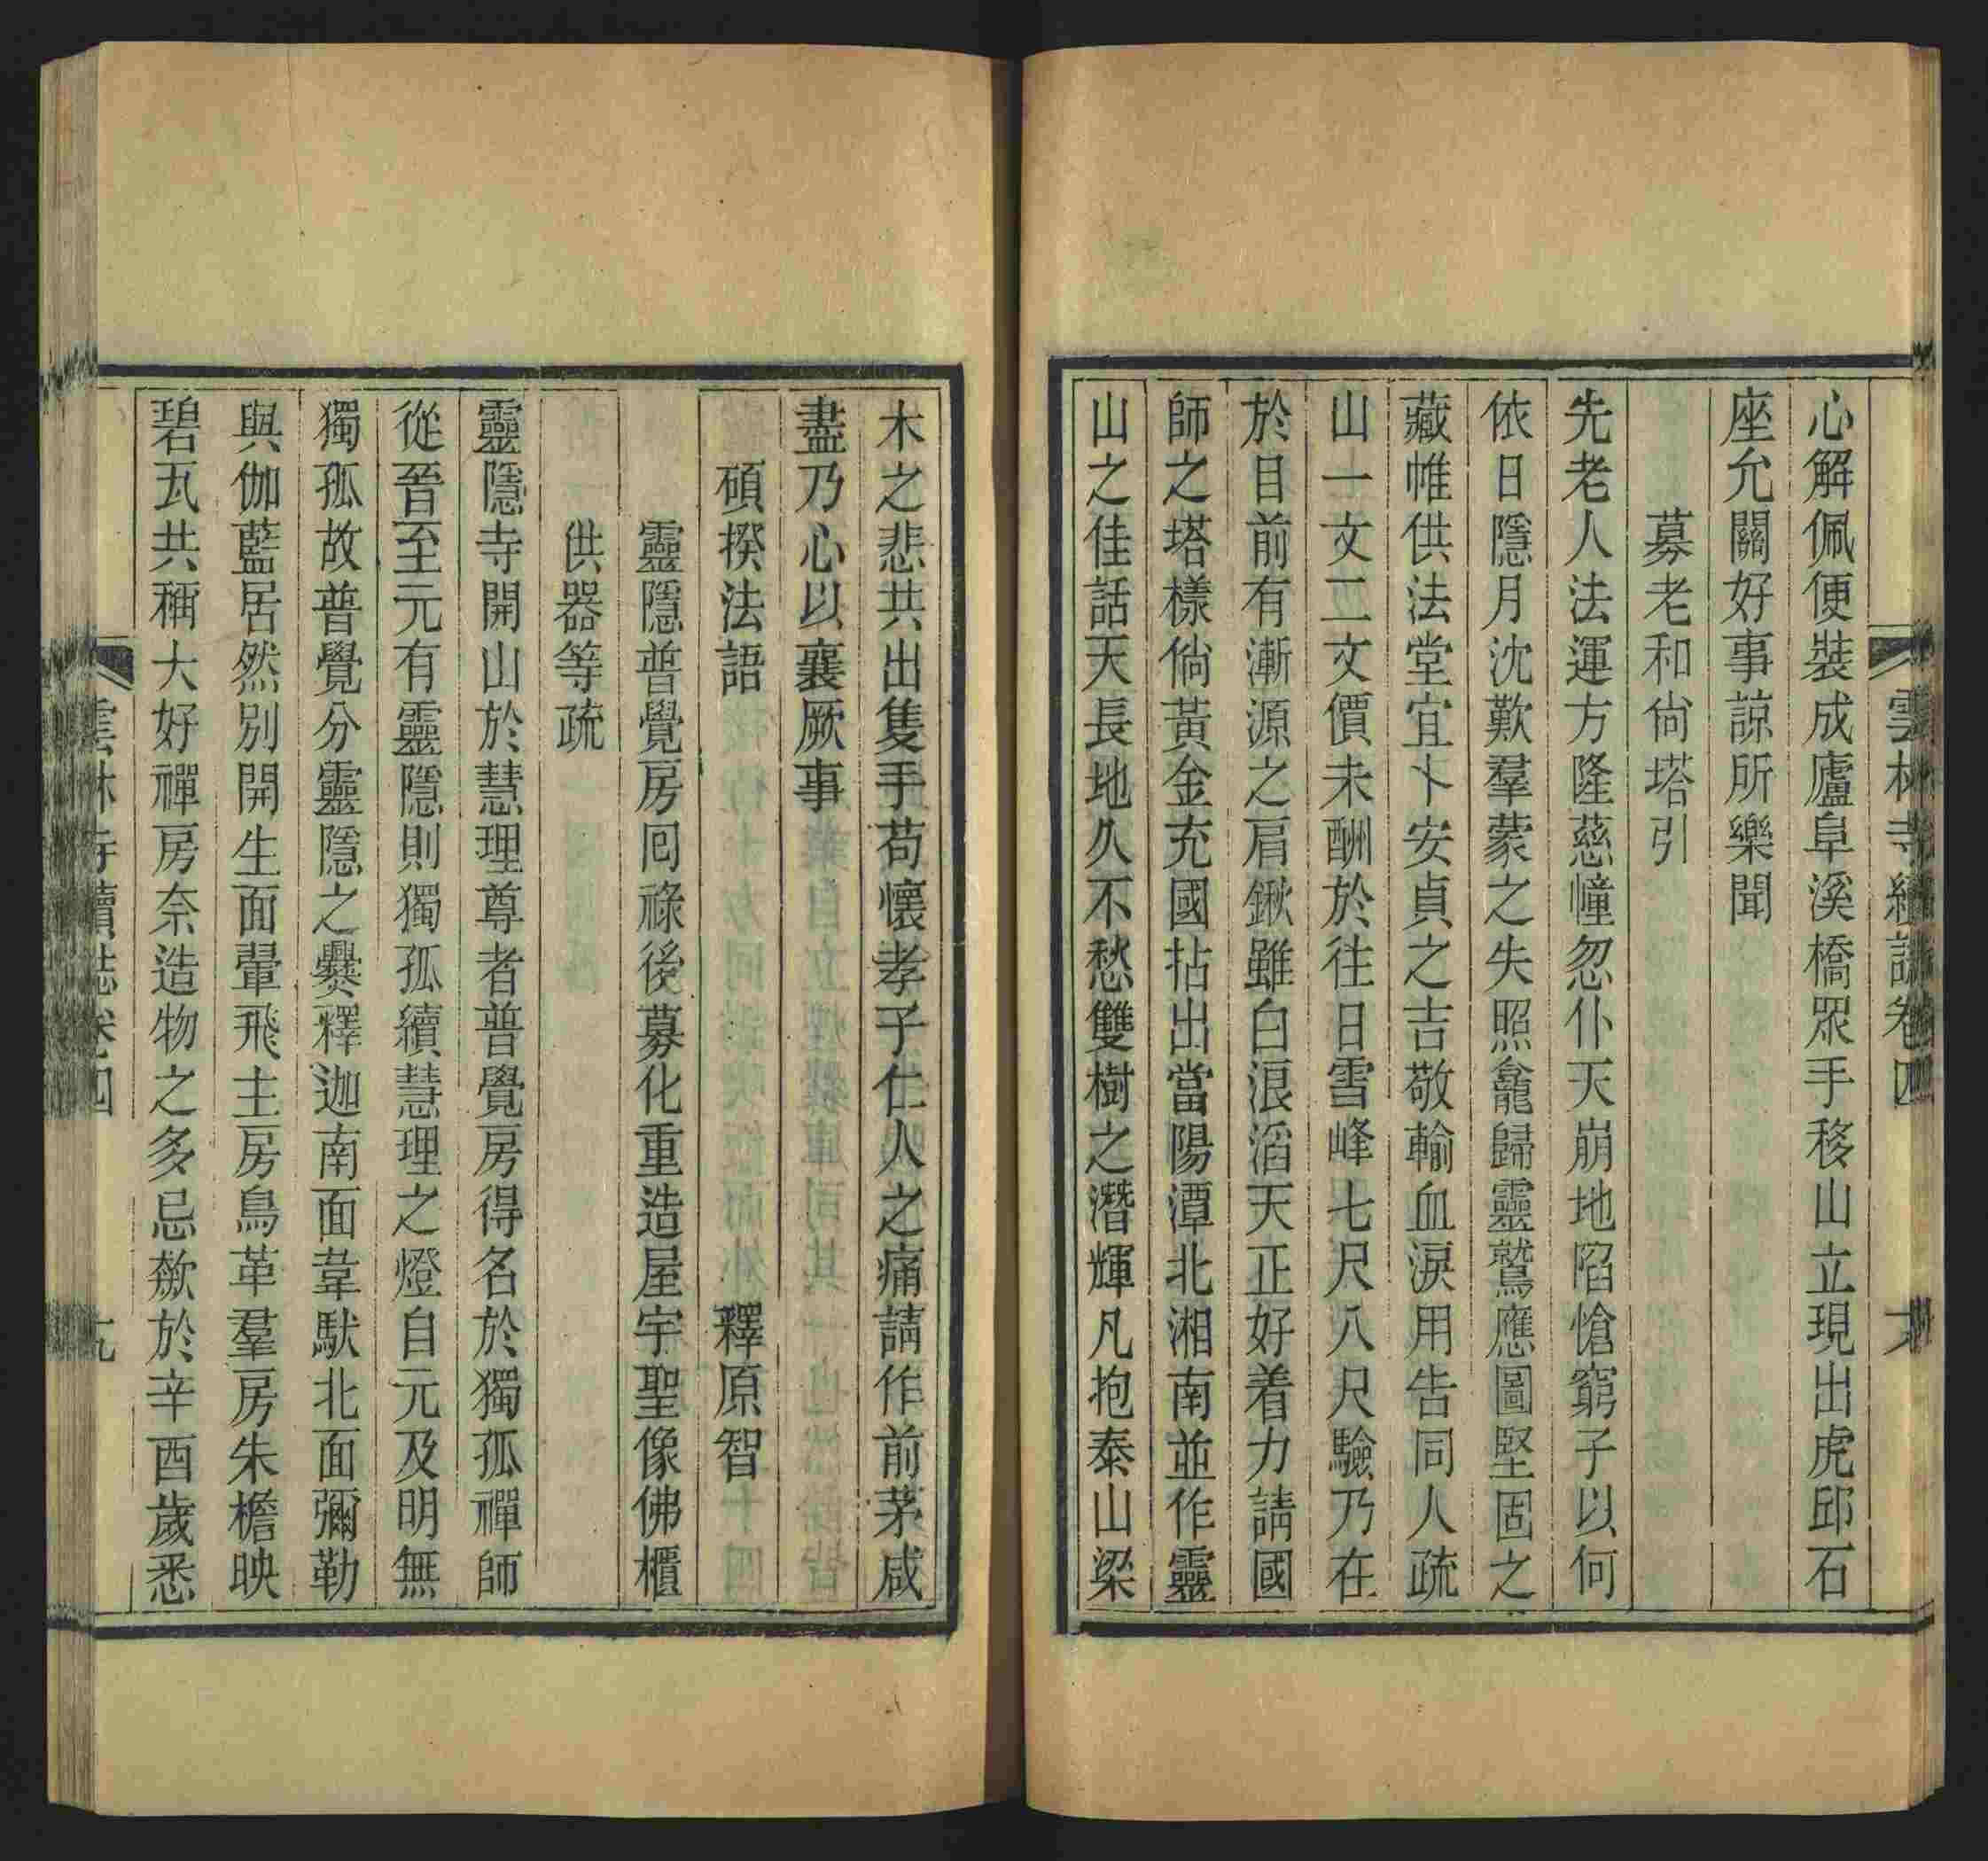 雲林寺續誌卷四
心解佩便裝成廬阜溪橋眾手移山立現出虎邱石
座允關好事諒所樂聞
募老和尙塔引
先老人法運方隆慈幢忽仆天崩地陷愴窮子以何
依日隱月沈歎羣蒙之失照龕歸靈鷲應圖堅固之
藏帷供法堂宜卜安貞之吉敬輸血淚用告同人疏
山一文二文價未酬於往日雪峰七尺八尺驗乃在
於目前有漸源之肩鍬雖白浪滔天正好着力請國
師之塔樣倘黃金充國拈出當陽潭北湘南並作靈
山之佳話天長地久不愁雙樹之潛輝凡抱泰山梁
木之悲共出隻手苟懷孝子仁人之痛請作前茅咸
盡乃心以襄厥事
碩揆法語 釋原智
靈隱普覺房囘祿後募化重造屋宇聖像佛櫃
供器等疏
靈隱寺開山於慧理尊者普覺房得名於獨孤禪師
從晉至元有靈隱則獨孤續慧理之燈自元及明無
獨孤故普覺分靈隱之爨釋迦南面韋馱北面彌勒
與伽藍居然別開生面翬飛主房鳥革羣房朱檐映
碧瓦共稱大好禪房奈造物之多忌歘於辛酉歲悉
雲林寺續誌卷四 九